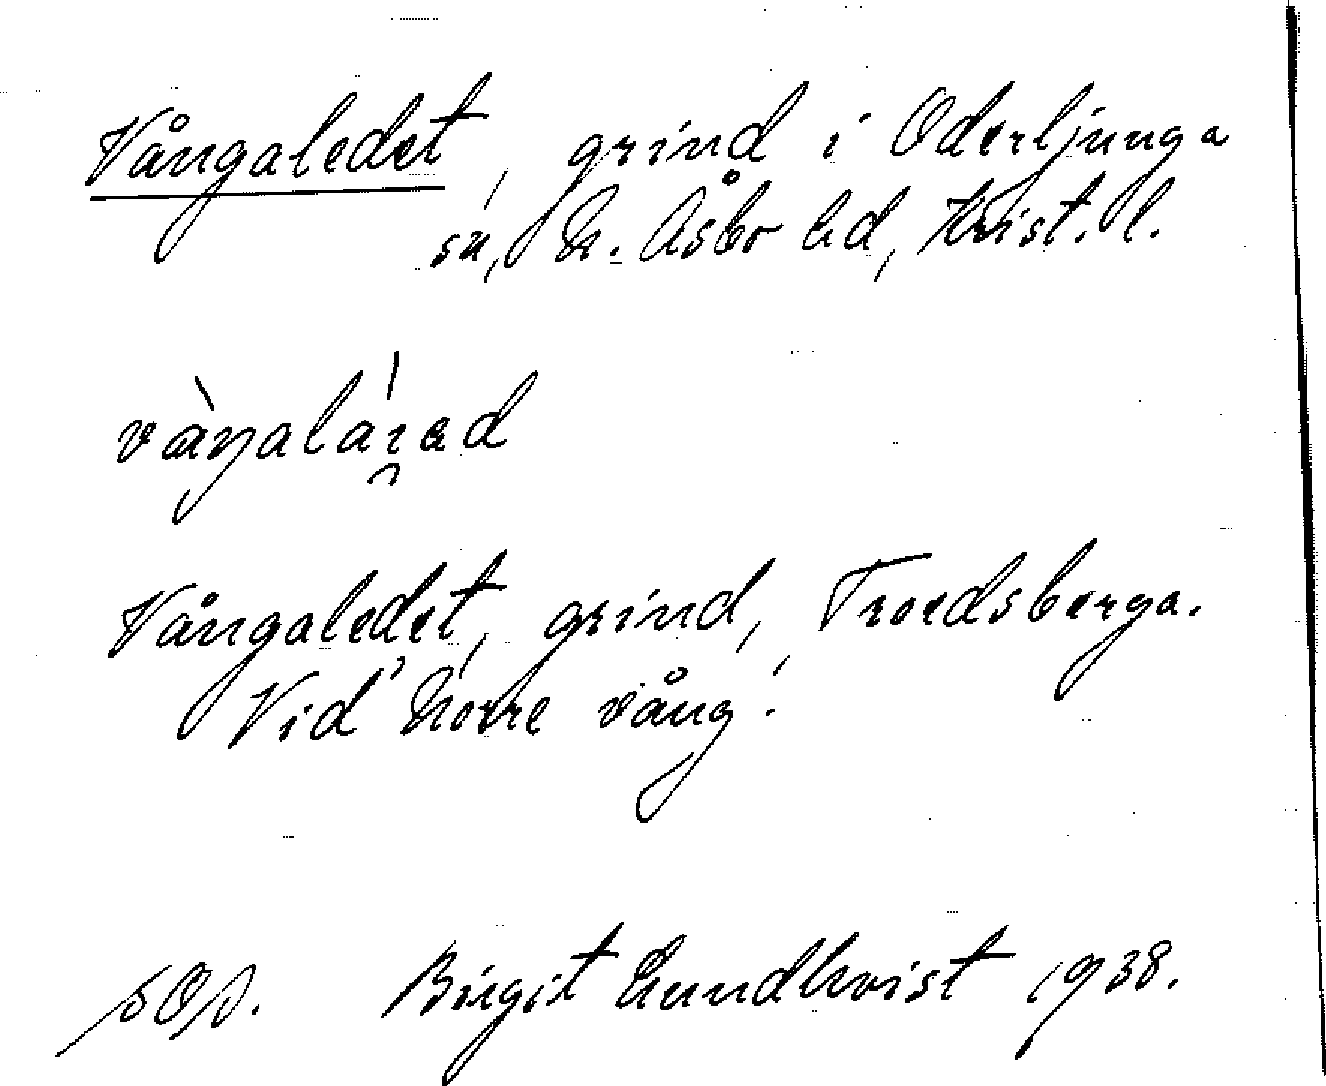 Vångaledet, grind i Oderljunga
sn, N. Åsbo hd, Krist. l.
vàŋalá
Vångaledet, grind, Troedsberga.
Vid Norre vång.
Birgit Lundkvist 1938.